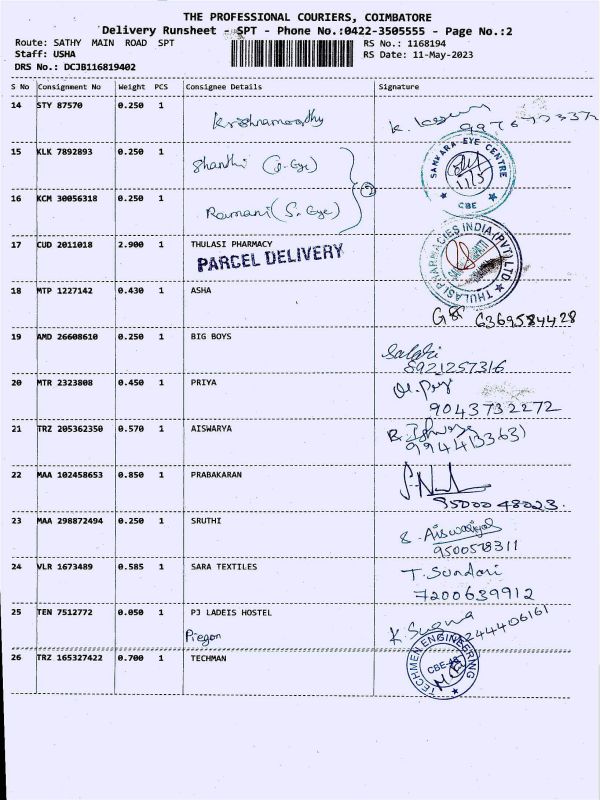 THE PROFESSIONAL COURIERS, COIMBATORE
Delivery Runsheet - SPT - Phone No.:0422-3505555 - Page No.:2
Route: SATHY MAIN ROAD SPT
RS No.: 1168194
Staff: USHA
RS Date: 11-May-2023
DRS No.: DCJB116819402
S No Consignment No Weight PCS Consignee Details Signature
14 STY 87570 0.250 1 Krishnamoorthy
15 KLK 7892893 0.250 1 Shanthi (S.Eye)
SANKARA EYE CENTRE
11/5
CBE
16 KCM 30056318 0.250 1 Ramani (S. Eye)
2
17 CUD 2011018 2.900 1 THULASI PHARMACY
PARCEL DELIVERY
THULASI PHARMACIES INDIA (PVT) LTD
18 MTP 1227142 0.430 1 ASHA
6369584428
19 AMD 26608610 0.250 1 BIG BOYS
8921257316
20 MTR 2323808 0.450 1 PRIYA
9043732272
21 TRZ 205362350 0.570 1 AISWARYA
22 MAA 102458653 0.850 1 PRABAKARAN
95000 48023.
23 MAA 298872494 0.250 1 SRUTHI
9500578311
24 VLR 1673489 0.585 1 SARA TEXTILES
T. Sundari
7200639912
25 TEN 7512772 0.050 1 PJ LADEIS HOSTEL
Piegon
K. Suguna
26 TRZ 165327422 0.700 1 TECHMAN
TECHMEN ENGINEERING